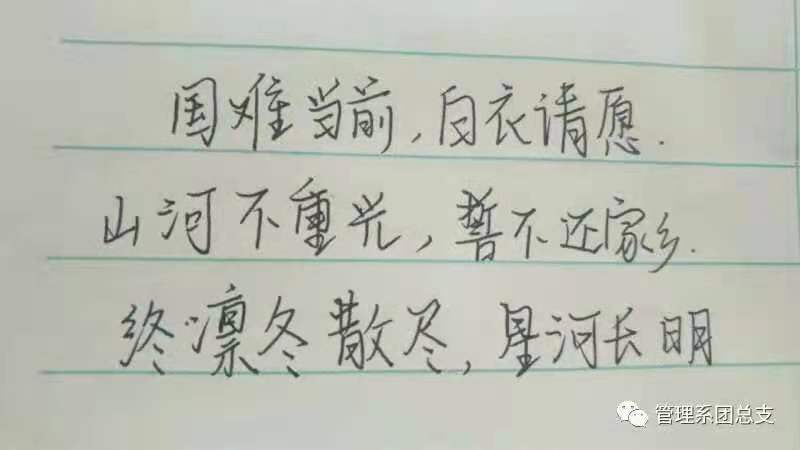 国难当前,白衣请愿.
山河不重光,誓不还家乡.
终凛冬散尽,星河长明
管理系团总支